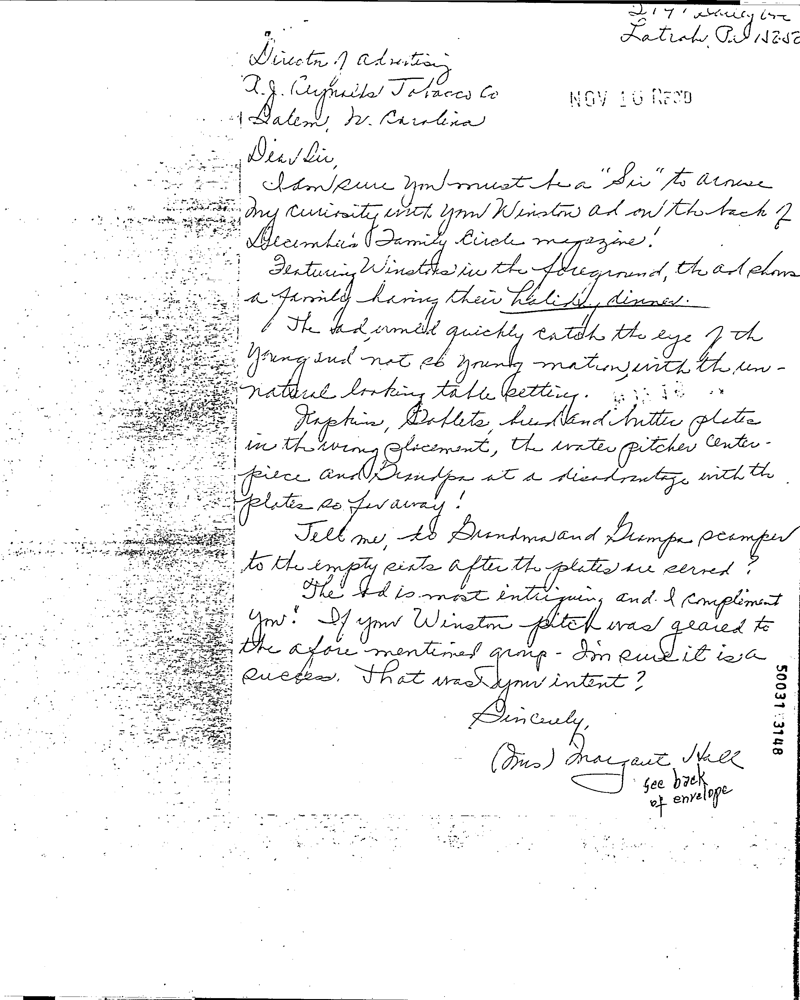 Latrobe, Pa 15650
Director of Advertising
R.J. Reynolds Tobacco Co
NOV 10 REC'D
Salem, N. Carolina
Dear Sir,
I am sure you must be a "Sir" to arouse
my curiosity with your Winston ad on the back of
December's Family Circle magazine!
Featuring Winstons in the foreground, the ad shows
a family having their holiday dinner.
The ad, quickly catch the eye of the
young and not so young matron, with the un-
natural looking table setting.
Napkins, Goblets, bread and butter plates
in the wrong placement, the water pitcher center-
piece and Grandpa at a disadvantage with the
plates so far away!
Tell me, do Grandma and Grampa scamper
to the empty seats after the plates are served?
The ad is most intriguing and I compliment
you! If your Winston pitch was geared to
the afore mentioned group - I'm sure it is a
success. That was your intent?
50031 3148
Sincerely,
(Mrs) Margaret Hall
see back
of envelope